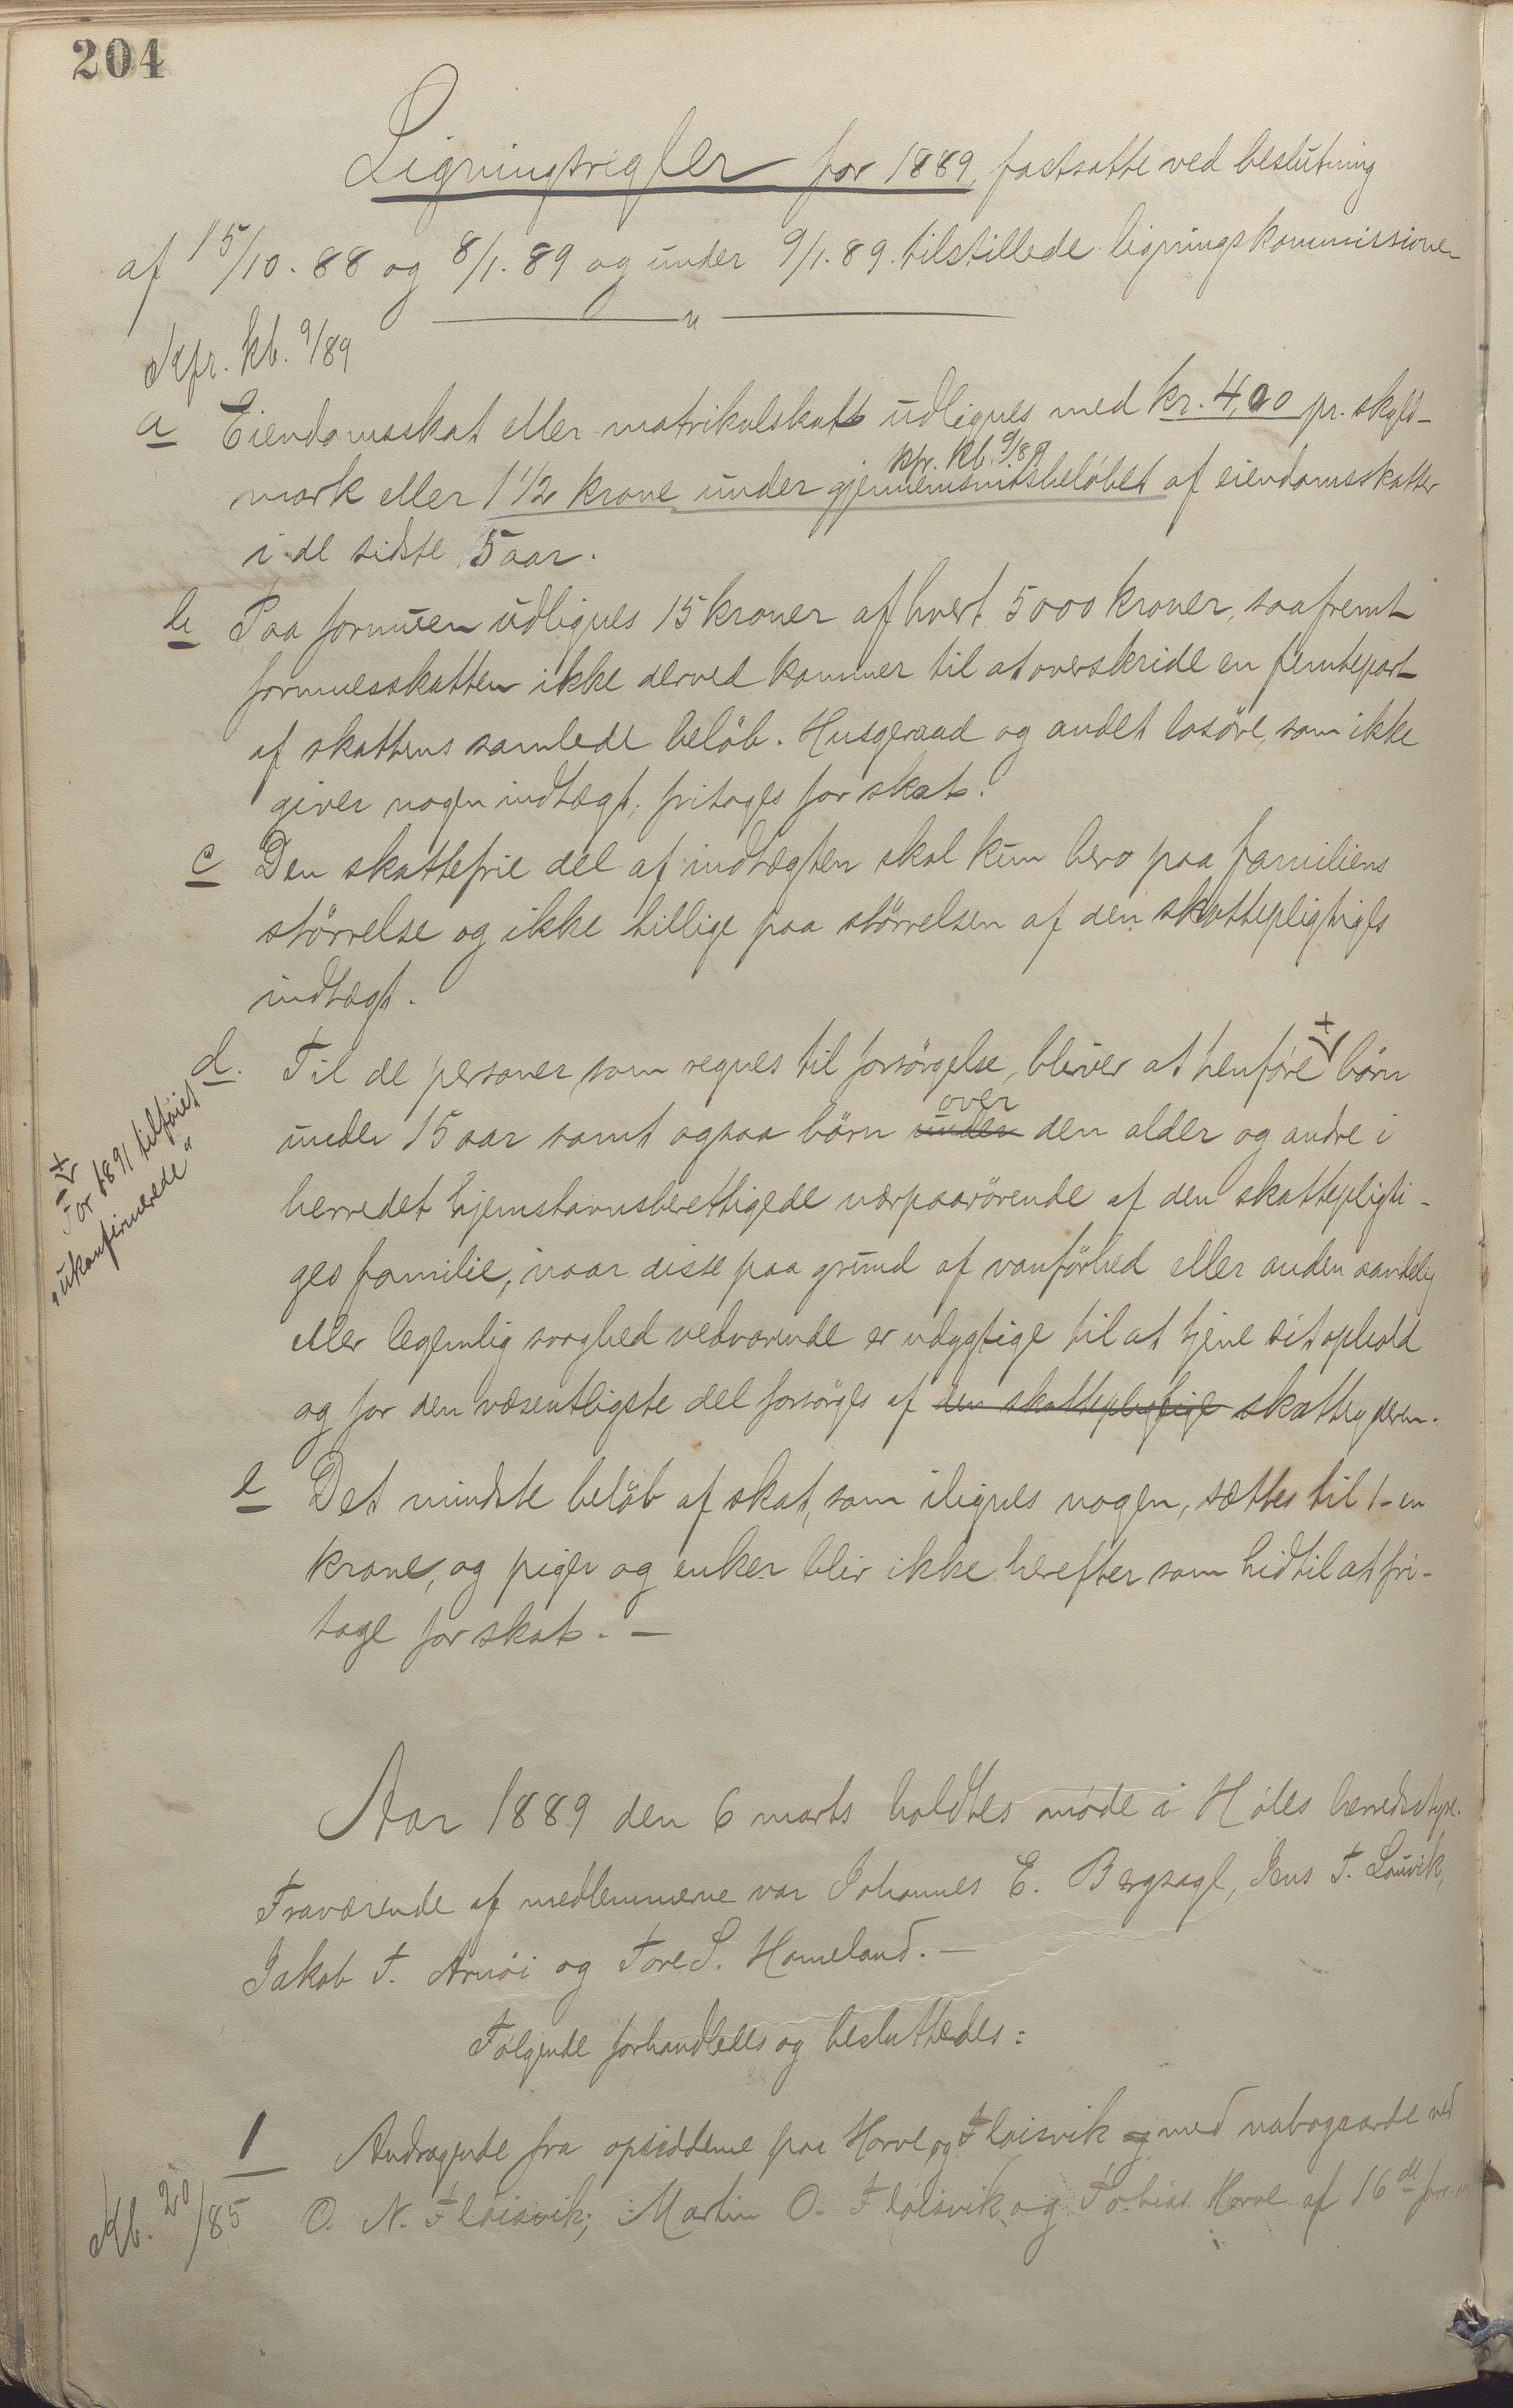 204
Ligningsregler for 1889, fastsatte ved beslutning
af 15/10. 88 og 8/1. 89 og under 9/1. 89. tilstillede ligningskommissionen
Kfr. kb. 9/89
a Eiendomsskat eller matrikulskatt udlignes med kr. 4,00 pr. skyld-
kfr. Kb. 9/89
mark eller 1 1/2 krone under gjennemsnitsbeløbet af eiendomsskatter
i de sidste 5 aar.
b Paa formuen udlignes 15 kroner af hvert 5000 kroner, saafremt
formuesskatten ikke derved kommer til at overskride en femtepart
af skattens samlede beløb. Husgeraad og andet løsøre, som ikke
giver nogen indtægt, fritages for skat.
c Den skattefrie del af indtægten skal kun bero paa familiens
størrelse og ikke tillige paa størrelsen af den skattepligtiges
indtægt.
d. Til de personer, som regnes til forsørgelse, bliver at henføre børn
over
under 15 aar samt ogsaa børn under den alder og andre i
herredet hjemstavnsberettigede nærpaarørende af den skattepligti-
ges familie, naar disse paa grund af vanførhed eller anden aandelig
eller legemlig svaghed vedvarende er udygtige til at tjene sit ophold
og for den væsentligste del forsørges af den skattepligtige skatteyderen.
For 1891 tilføiet
"ukonfirmerede"
e Det mindste beløb af skat, som ilignes nogen, sættes til 1 - en
krone, og piger og enker blir ikke herefter som hidtil at fri-
tage for skat. -
Aar 1889 den 6 marts holdtes møde i Høles herredsstyre.
Fraværende af medlemmerne var Johannes E. Bergsagel, Jens T. Lauvik,
Jakob T. Arnøi og Tore S. Hameland. -
Følgende forhandledes og besluttedes:
1 Andragende fra opsidderne paa Horve og Fløisvik og med nabogaarde ved
Kb. 20/85 O. N. Fløisvik, Martin O. Fløisvik og Tobias Horve af 16de forr.